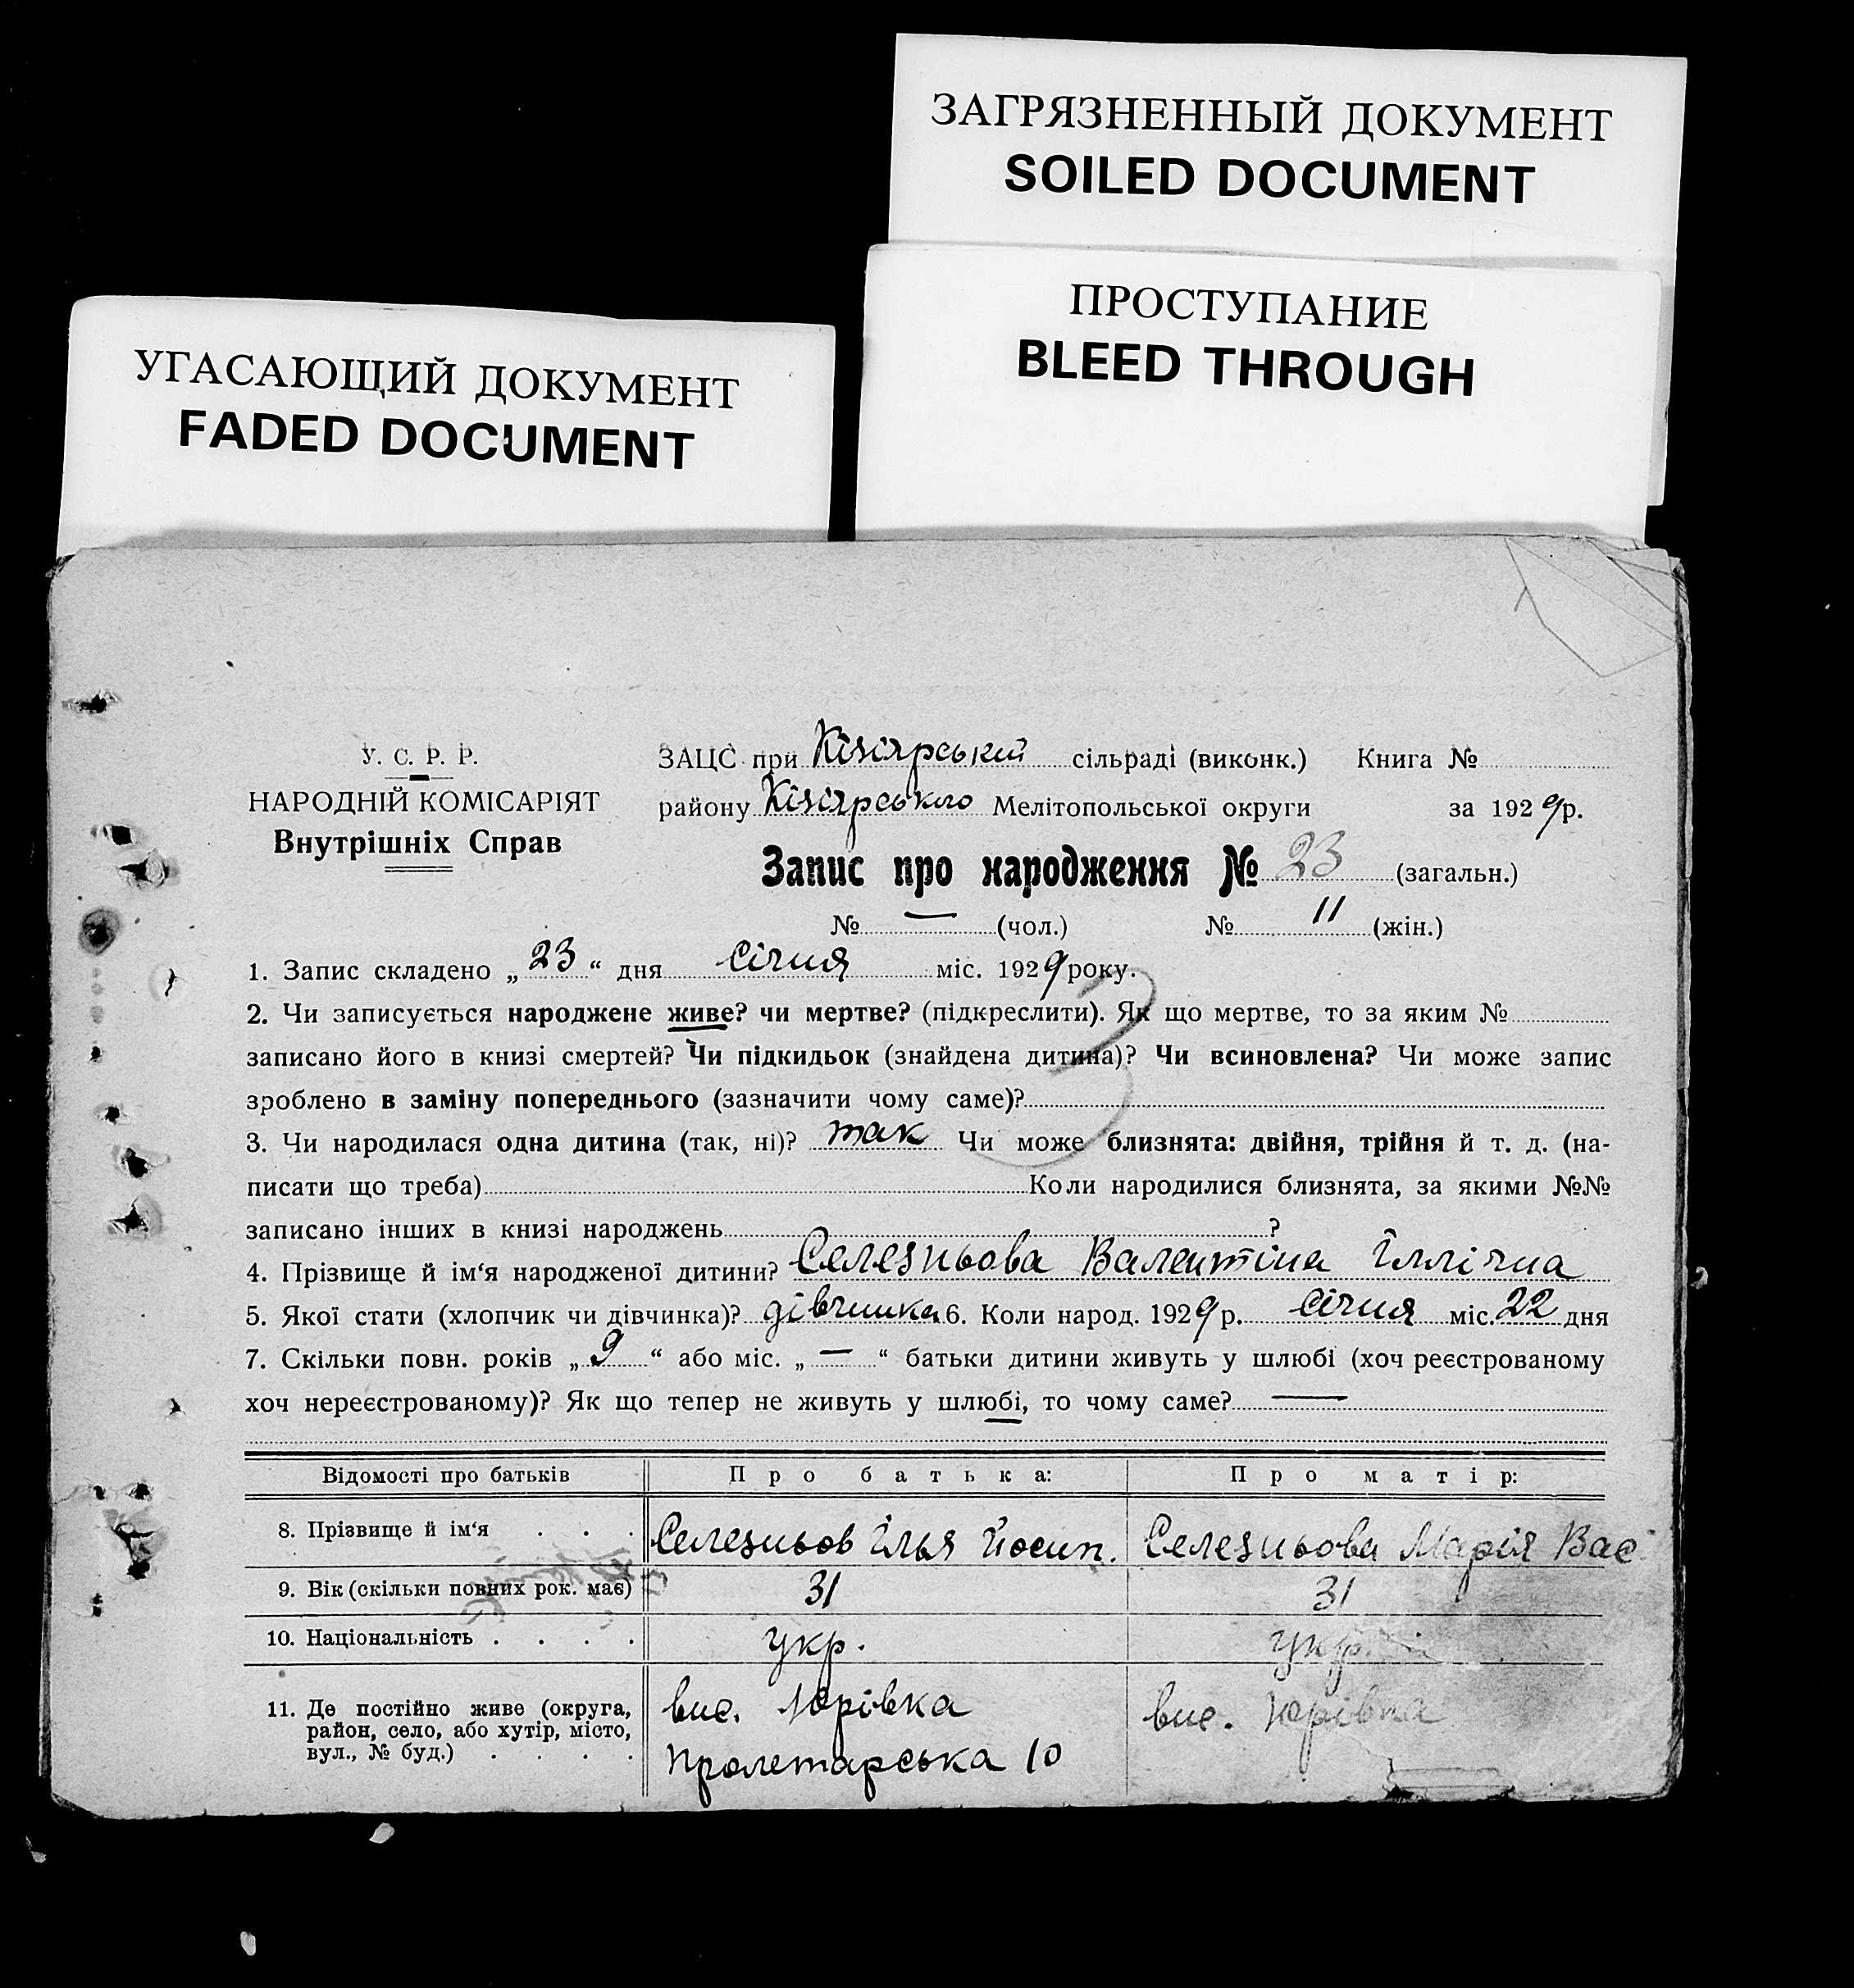 ЗАГРЯЗНЕННЫЙ ДОКУМЕНТ
SOILED DOCUMENT
ПРОСТУПАНИЕ
BLEED THROUGH
УГАСАЮЩИЙ ДОКУМЕНТ
FADED DOCUMENT
У. С. Р. Р.
НАРОДНІЙ КОМІСАРІЯТ
Внутрішніх Справ
ЗАЦС при Кізіярській сільраді (виконк.) Книга №
району Кізіярського Мелітопольської округи за 1929 р.
Запис про народження № 23 (загальн.)
№ — (чол.) № 11 (жін.)
1. Запис складено „23“ дня Січня міс. 1929 року.
2. Чи записується народжене живе? чи мертве? (підкреслити). Як що мертве, то за яким №
записано його в книзі смертей? Чи підкидьок (знайдена дитина)? Чи всиновлена? Чи може запис
зроблено в заміну попереднього (зазначити чому саме)?
3. Чи народилася одна дитина (так, ні)? так Чи може близнята: двійня, трійня й т. д. (на-
писати що треба) Коли народилися близнята, за якими №№
записано інших в книзі народжень ?
4. Прізвище й ім‘я народженої дитини? Селезньова Валентіна Іллічна
5. Якої стати (хлопчик чи дівчинка)? дівчинка 6. Коли народ. 1929 р. Січня міс. 22 дня
7. Скільки повн. років „9“ або міс. „—“ батьки дитини живуть у шлюбі (хоч реєстрованому
хоч нереєстрованому)? Як що тепер не живуть у шлюбі, то чому саме? —
Відомості про батьків Про батька: Про матір:
8. Прізвище й ім‘я . . . Селезньов Ілья Йосип. Селезньова Марія Вас
9. Вік (скільки повних рок. має) 31 31
10. Національність . . . . укр. укр.
11. Де постійно живе (округа,
район, село, або хутір, місто,
вул., № буд.) . . . .
вис. Юрівка
Пролетарська 10
вис. Юрівка